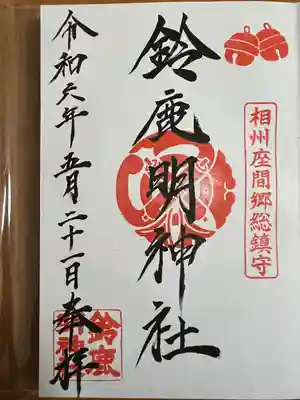 相州座間郷総鎮守
鈴鹿明神社
令和六年五月二十一日奉拝
鈴鹿明神社